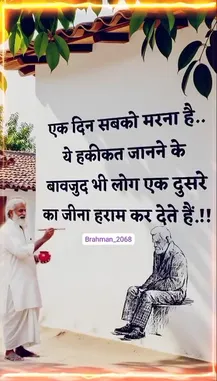 एक दिन सबको मरना है..
ये हकीकत जानने के
बावजुद भी लोग एक दुसरे
का जीना हराम कर देते हैं.!!
Brahman_2068